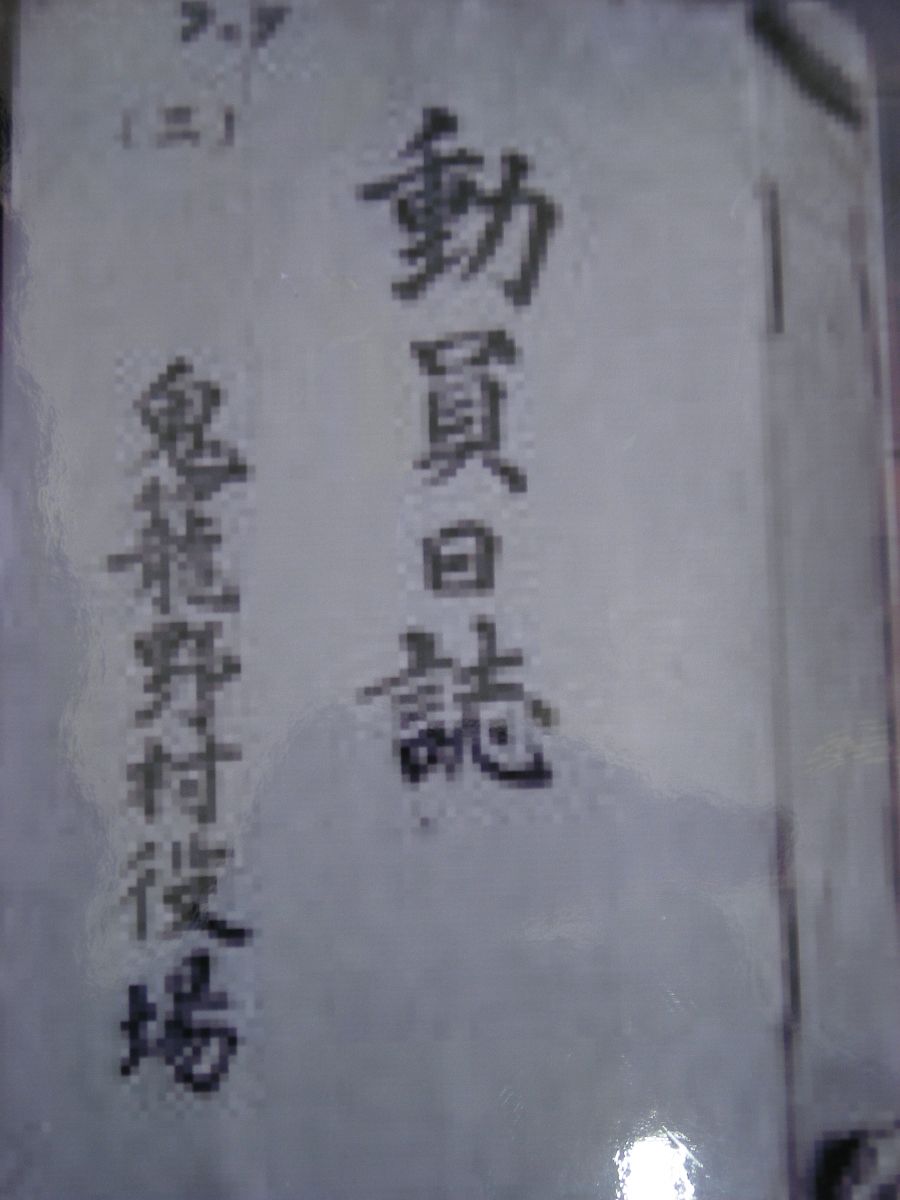 動員日誌
(二)
鬼龍野村役場